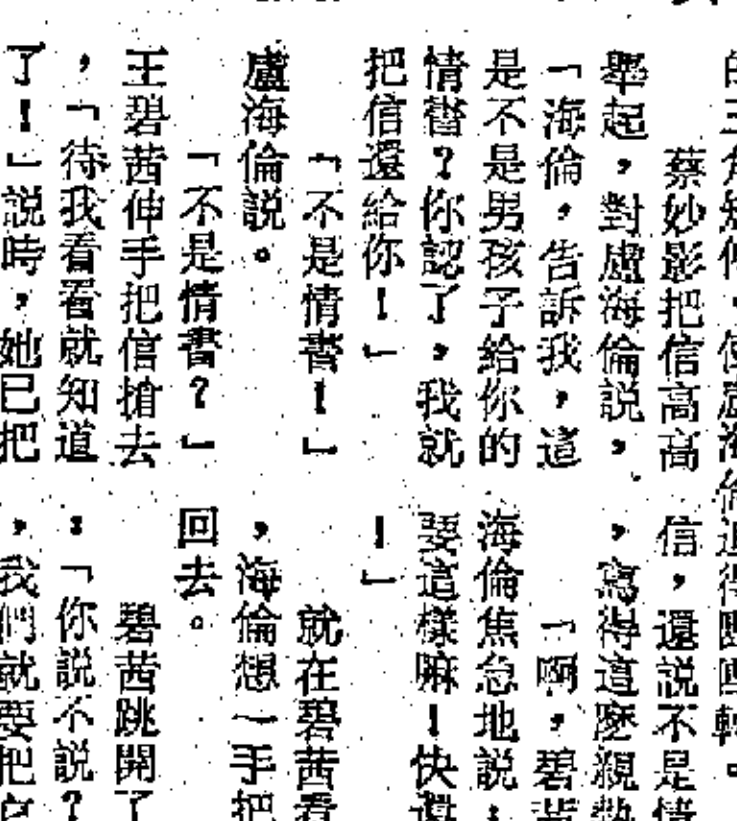 蔡妙影把信高高
舉起，對盧海倫說，
「海倫，告訴我，這
是不是男孩子給你的
情書？你認了，我就
把信還給你！」
「不是情書！」
盧海倫說。
「不是情書？」
王碧茜伸手把信搶去
，「待我看看就知道
了！」說時，她已把
信，還說不是情
，寫得這麼親熱
「啊，碧茜
海倫焦急地說：
要這樣嘛！快還
！」
就在碧茜看
，海倫想一手把
回去。
碧茜跳開了
：「你說不說？
，我們就要把